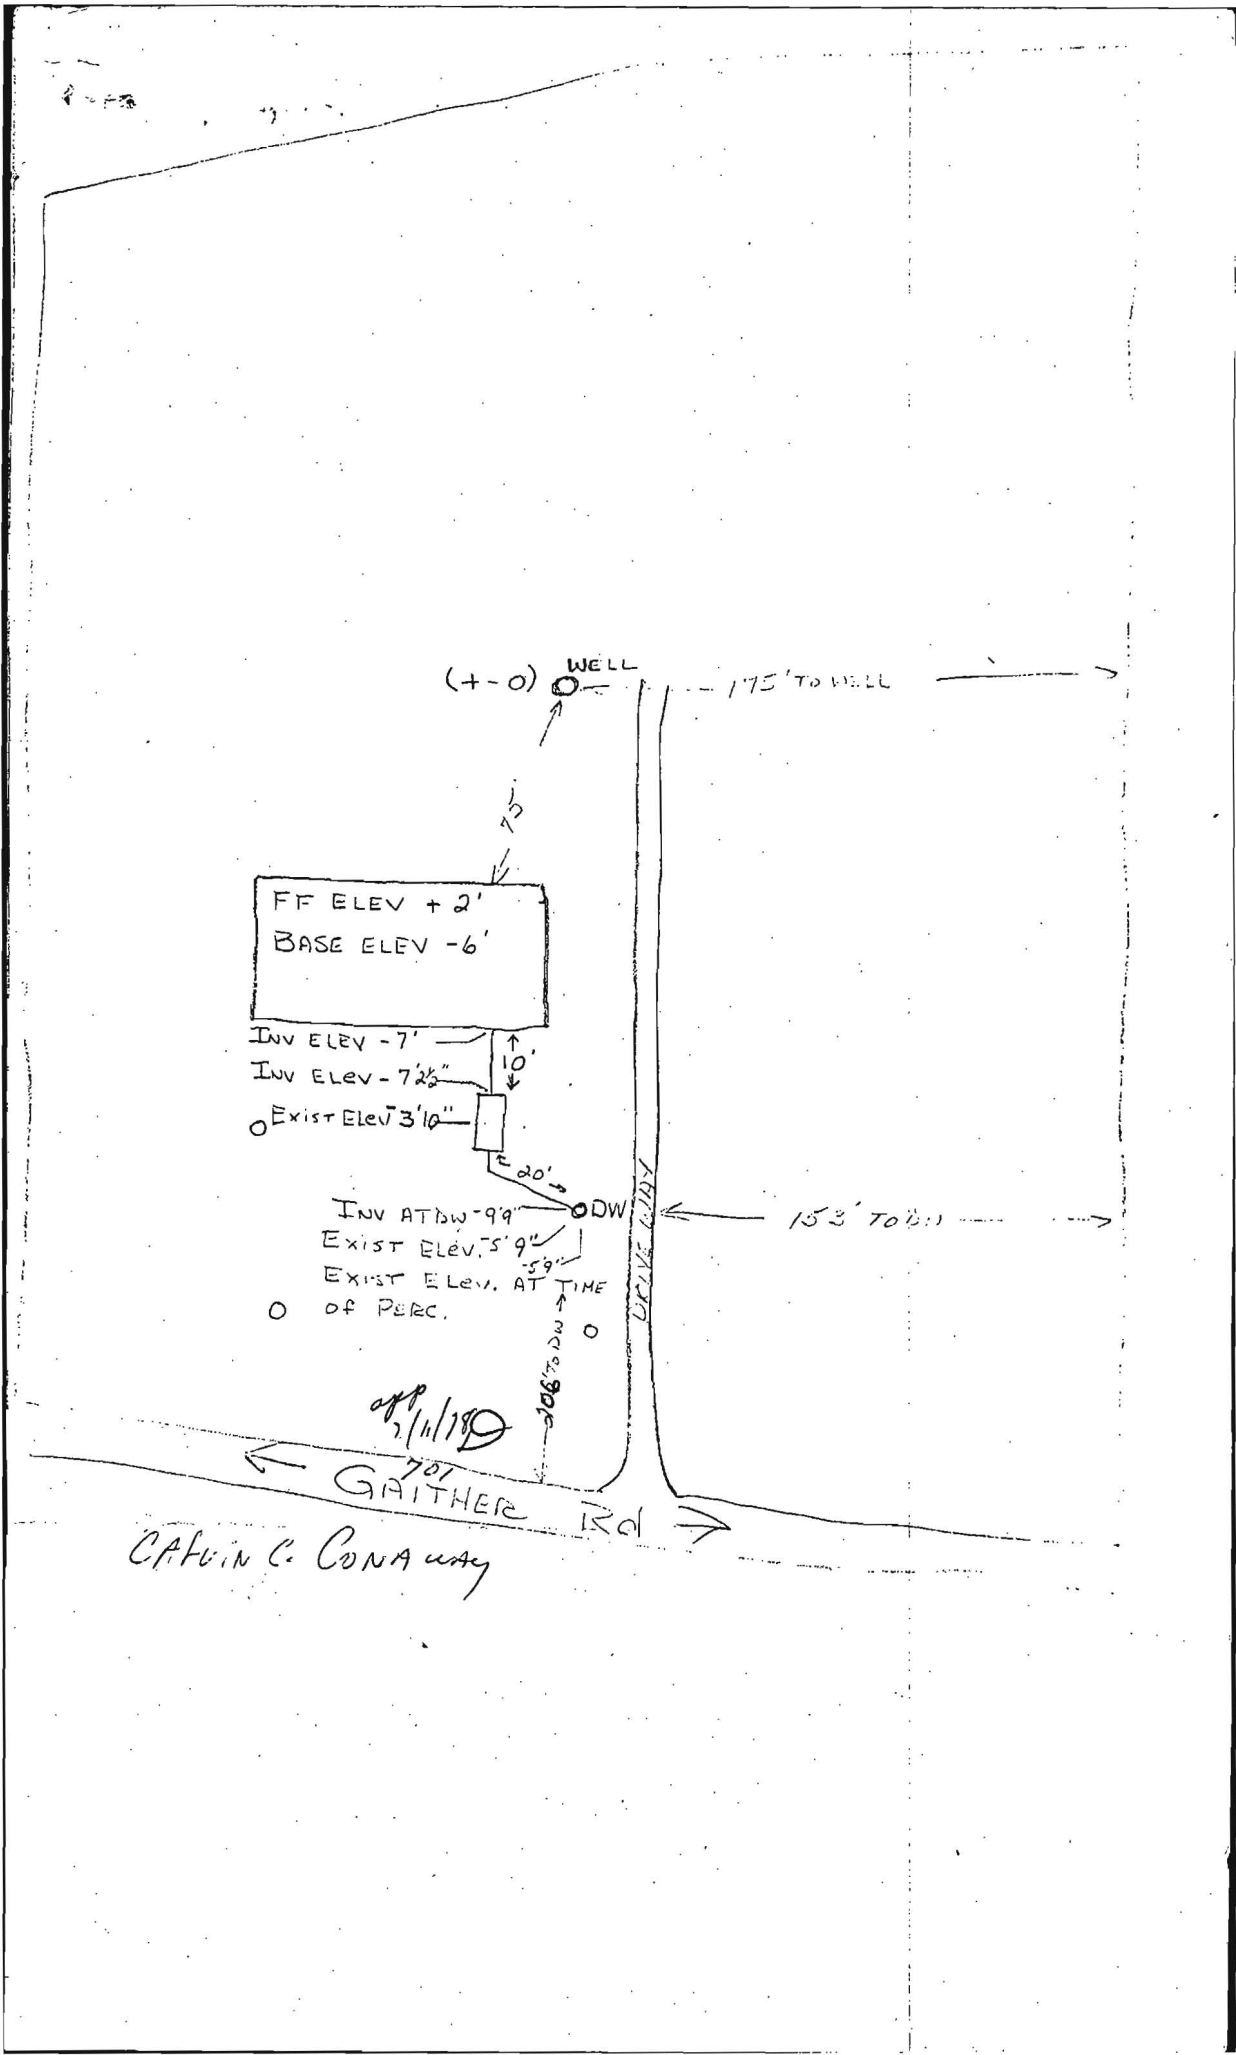 WELL
(+-0)
175' TO WELL
75'
FF ELEV + 2'
BASE ELEV -6'
INV ELEV -7'
10'
INV ELEV - 7'2½"
EXIST ELEV -3'10"
20'
DW
INV AT DW -9'9"
153' TO DW
EXIST ELEV. -5'9"
-5'9"
EXIST ELEV. AT TIME
OF PERC.
DRIVEWAY
206' TO DW
app
701
GAITHER Rd
CALVIN C. CONAWAY